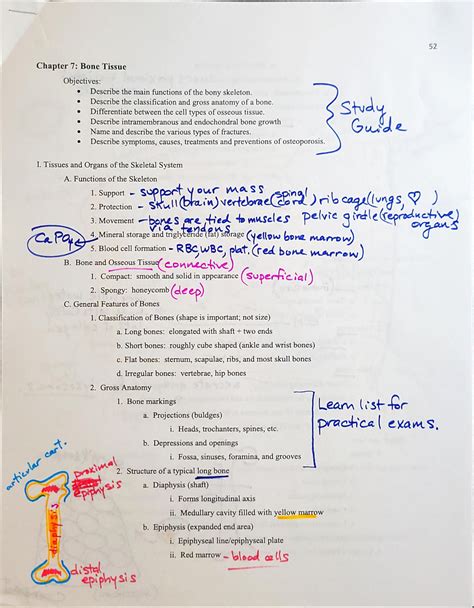 52
Chapter 7: Bone Tissue
Objectives:
• Describe the main functions of the bony skeleton.
• Describe the classification and gross anatomy of a bone.
• Differentiate between the cell types of osseous tissue.
• Describe intramembranous and endochondral bone growth
• Name and describe the various types of fractures.
• Describe symptoms, causes, treatments and preventions of osteoporosis.
Study
Guide
I. Tissues and Organs of the Skeletal System
A. Functions of the Skeleton
1. Support - support your mass
2. Protection - skull (brain) vertebrae (spinal cord) rib cage (lungs, ♡)
3. Movement - bones are tied to muscles via tendons pelvic girdle (reproductive) organs
CaPO4 4. Mineral storage and triglyceride (fat) storage (yellow bone marrow)
5. Blood cell formation - RBC, WBC, plat. (red bone marrow)
B. Bone and Osseous Tissue (connective)
1. Compact: smooth and solid in appearance (superficial)
2. Spongy: honeycomb (deep)
C. General Features of Bones
1. Classification of Bones (shape is important; not size)
a. Long bones: elongated with shaft + two ends
b. Short bones: roughly cube shaped (ankle and wrist bones)
c. Flat bones: sternum, scapulae, ribs, and most skull bones
d. Irregular bones: vertebrae, hip bones
2. Gross Anatomy
1. Bone markings
a. Projections (buldges)
i. Heads, trochanters, spines, etc.
b. Depressions and openings
i. Fossa, sinuses, foramina, and grooves
Learn list for
practical exams.
2. Structure of a typical long bone
a. Diaphysis (shaft)
i. Forms longitudinal axis
ii. Medullary cavity filled with yellow marrow
b. Epiphysis (expanded end area)
i. Epiphyseal line/epiphyseal plate
ii. Red marrow - blood cells
articular cart.
proximal
epiphysis
diaphysis
distal
epiphysis